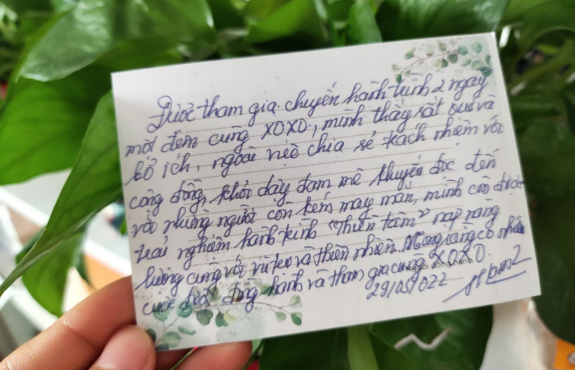 Được tham gia chuyến hành trình 2 ngày
một đêm cùng XOXO, mình thấy rất vui và
bổ ích, ngoài việc chia sẻ trách nhiệm với
cộng đồng, khơi dậy đam mê khuyến đọc đến
với những người còn kém may mắn, mình còn được
trải nghiệm hành trình "thiền tâm" nạp năng
lượng cùng với vũ trụ và thiên nhiên. Mong rằng có nhiều
cuộc đời, đồng hành và tham gia cùng XOXO.
29/05/022